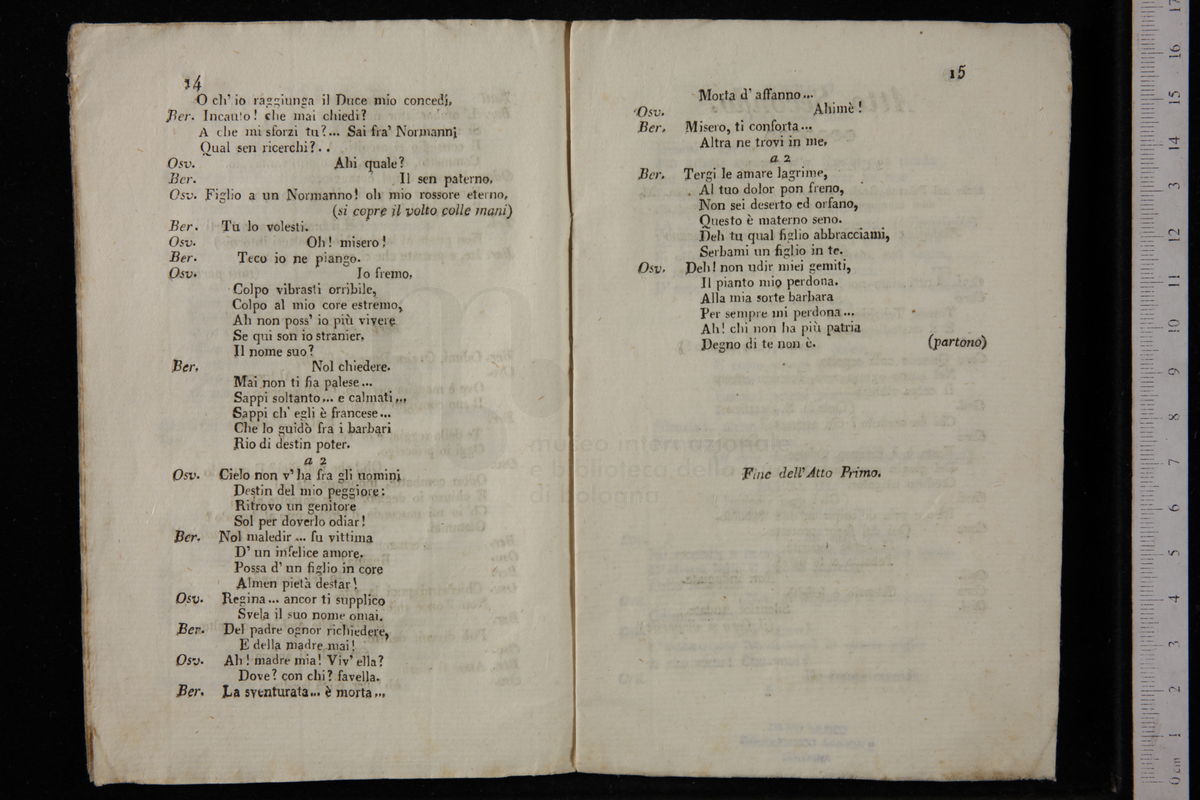 14
O ch' io raggiunga il Duce mio concedi,
Ber. Incauto! che mai chiedi?
A che mi sforzi tu?... Sai fra' Normanni
Qual sen ricerchi?..
Osv. Ahi quale?
Ber. Il sen paterno.
Osv. Figlio a un Normanno! oh mio rossore eterno,
(si copre il volto colle mani)
Ber. Tu lo volesti.
Osv. Oh! misero!
Ber. Teco io ne piango.
Osv. Io fremo,
Colpo vibrasti orribile,
Colpo al mio core estremo,
Ah non poss' io più vivere
Se qui son io stranier.
Il nome suo?
Ber. Nol chiedere.
Mai non ti fia palese...
Sappi soltanto... e calmati...
Sappi ch' egli è francese...
Che lo guidò fra i barbari
Rio di destin poter.
a 2
Osv. Cielo non v' ha fra gli uomini
Destin del mio peggiore:
Ritrovo un genitore
Sol per doverlo odiar!
Ber. Nol maledir... fu vittima
D' un infelice amore.
Possa d' un figlio in core
Almen pietà destar!
Osv. Regina... ancor ti supplico
Svela il suo nome omai.
Ber. Del padre ognor richiedere,
E della madre mai!
Osv. Ah! madre mia! Viv' ella?
Dove? con chi? favella.
Ber. La sventurata... è morta...
15
Morta d' affanno...
Osv. Ahimè!
Ber. Misero, ti conforta...
Altra ne trovi in me,
a 2
Ber. Tergi le amare lagrime,
Al tuo dolor pon freno,
Non sei deserto ed orfano,
Questo è materno seno.
Deh tu qual figlio abbracciami,
Serbami un figlio in te.
Osv. Deh! non udir miei gemiti,
Il pianto mio perdona.
Alla mia sorte barbara
Per sempre mi perdona...
Ah! chi non ha più patria
Degno di te non è. (partono)
Fine dell' Atto Primo.
museo internazionale
e biblioteca della
di bologna